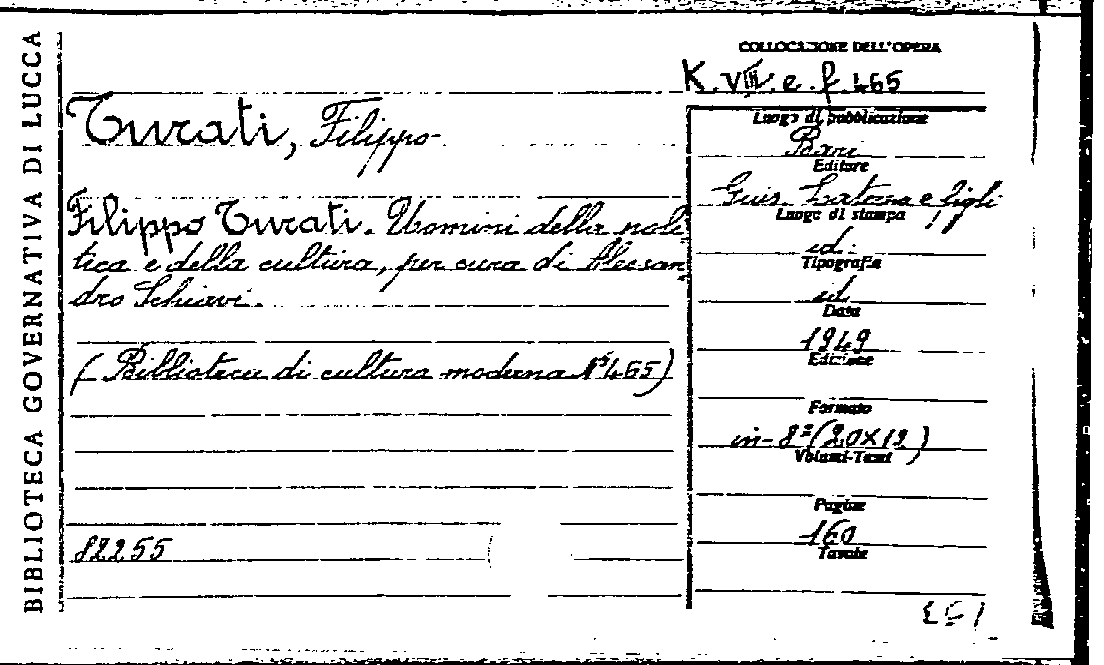 BIBLIOTECA GOVERNATIVA DI LUCCA
COLLOCAZIONE DELL'OPERA
K. VIII. e. f. 465
Turati, Filippo
Filippo Turati. Uomini della poli
tica e della cultura, per cura di Alessan
dro Schiavi.
(Biblioteca di cultura moderna N° 465)
82255
Luogo di pubblicazione
Bari
Editore
Gius. Laterza e figli
Luogo di stampa
id.
Tipografia
id
Data
1949
Edizione
Formato
in-8° (20X12)
Volumi-Tomi
Pagine
160
Tavole